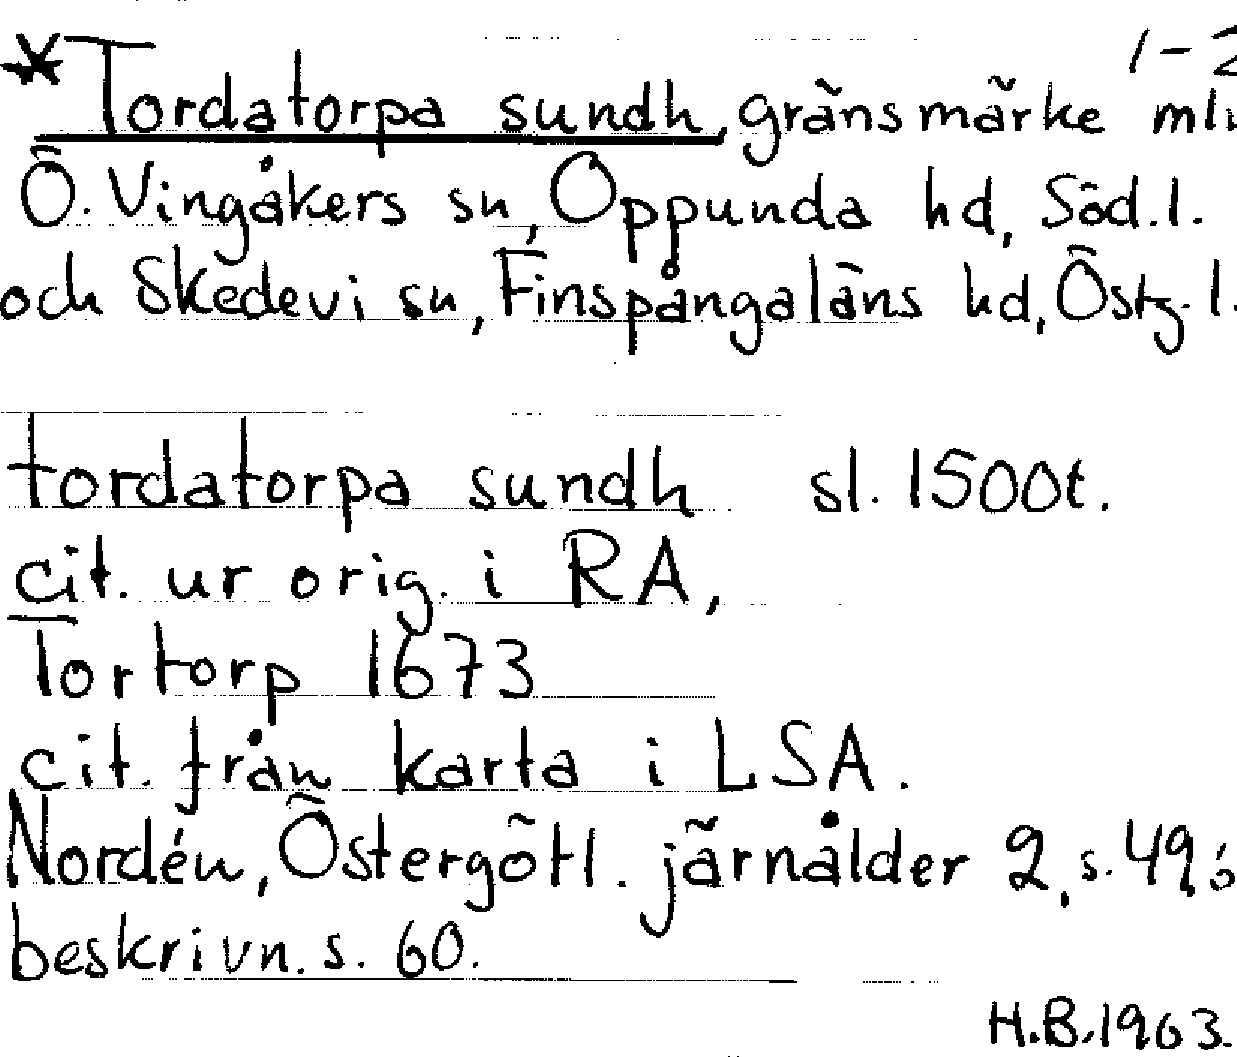 1-2
*Tordatorpa sundh, gränsmärke
Ö. Vingåkers sn, Oppunda hd, Söd.l.
och Skedevi sn, Finspångaläns hd, Östg.l.
tordatorpa sundh sl. 1500t.
cit. ur orig. i RA,
Tortorp 1673
cit. från karta i LSA.
Nordén, Östergötl. järnålder 2, s. 49
beskrivn. s. 60.
H.B. 1963.